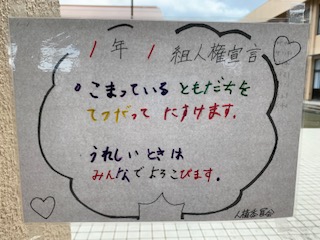 1年1組人権宣言
・こまっているともだちを
てつだってたすけます。
うれしいときは
みんなでよろこびます。
人権委員会